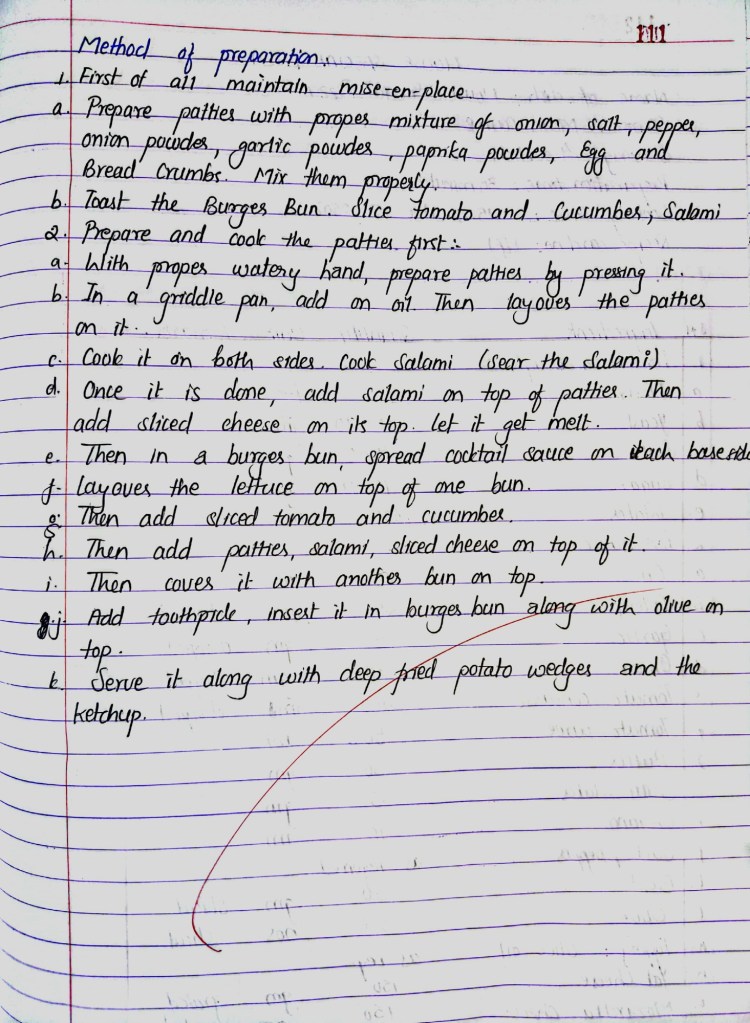 111
Method of preparation:
1. First of all maintain mise-en-place
a. Prepare patties with proper mixture of onion, salt, pepper,
onion powder, garlic powder, paprika powder, Egg and
Bread Crumbs. Mix them properly.
b. Toast the Burger Bun. Slice tomato and Cucumber, Salami
2. Prepare and cook the patties first:-
a. With proper watery hand, prepare patties by pressing it.
b. In a griddle pan, add on oil. Then layover the patties
on it.
c. Cook it on both sides. Cook Salami (sear the Salami)
d. Once it is done, add salami on top of patties. Then
add sliced cheese on its top. let it get melt.
e. Then in a burger bun, spread cocktail sauce on each base side
f. layover the lettuce on top of one bun.
g. Then add sliced tomato and cucumber.
h. Then add patties, salami, sliced cheese on top of it.
i. Then cover it with another bun on top.
j. Add toothpick, insert it in burger bun along with olive on
top.
k. Serve it along with deep fried potato wedges and the
ketchup.